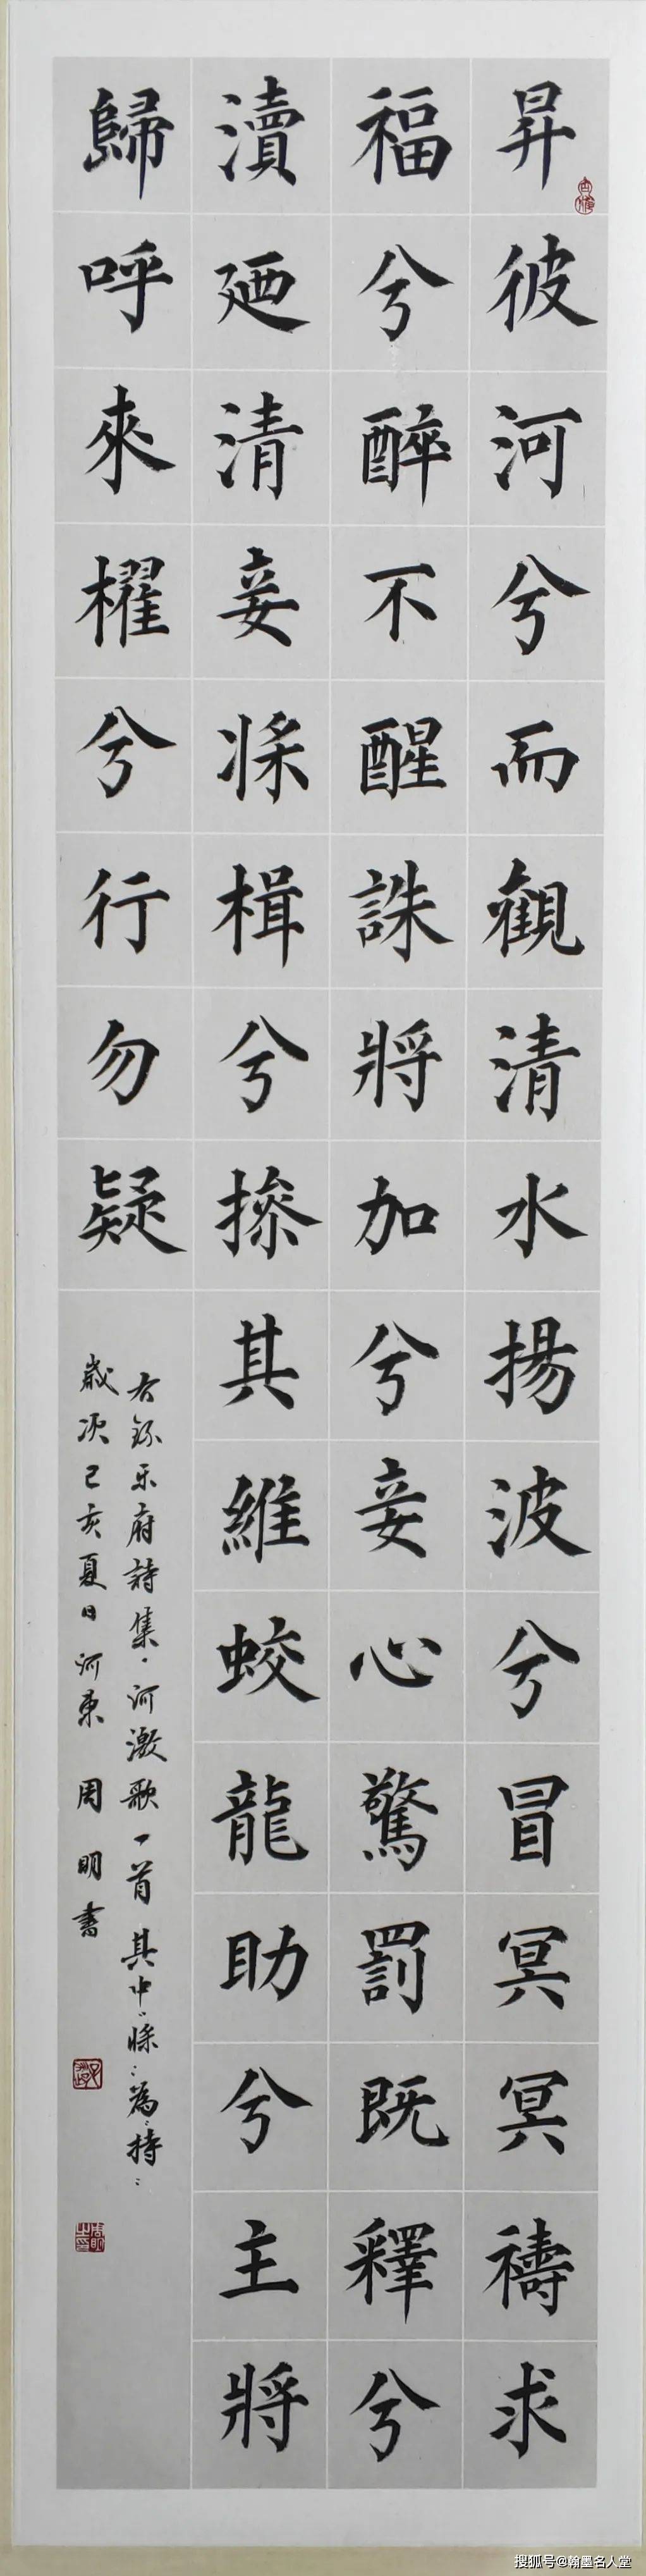 昇彼河兮而觀清水揚波兮冒冥冥禱求
福兮醉不醒誅將加兮妾心驚罰既釋兮
瀆廼清妾楫兮摻其維蛟龍助兮主將
歸呼來櫂兮行勿疑
右錄乐府詩集·河激歌一首其中為持
歲次己亥夏日河東周明書
搜狐号@翰墨名人堂